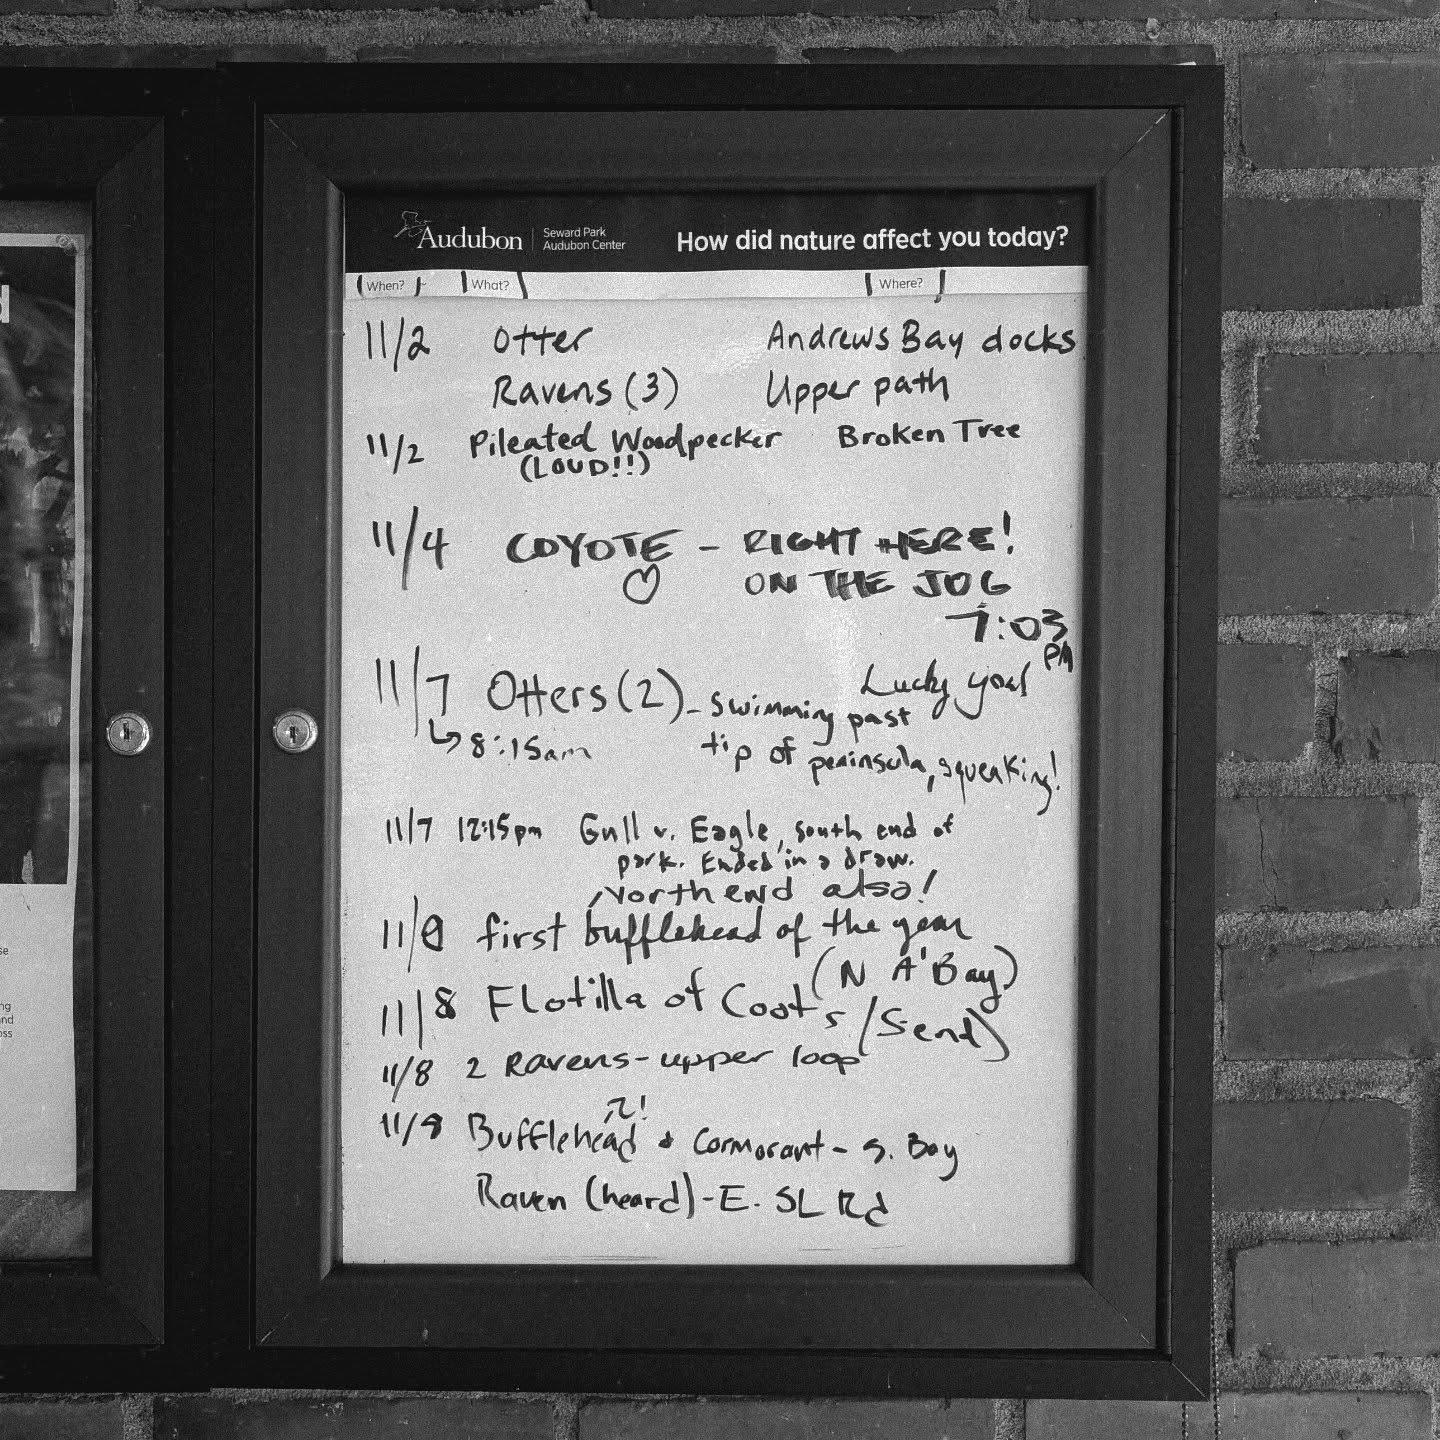 Audubon
Seward Park
Audubon Center
How did nature affect you today?
When? What? Where?
11/2 Otter Andrews Bay docks
Ravens (3) Upper path
11/2 Pileated Woodpecker Broken Tree
(LOUD!!)
11/4 COYOTE - RIGHT HERE!
♡ ON THE JOG
7:03
PM
Lucky you!
11/7 Otters (2) - swimming past
↳ 8:15am tip of peninsula, squeaking!
11/7 12:15pm Gull v. Eagle, south end of
park. Ended in a draw.
North end also!
11/8 first bufflehead of the year
(N A'Bay)
11/8 Flotilla of Coots (S end)
11/8 2 Ravens - upper loop
11/9 Bufflehead & Cormorant - S. Bay
Raven (heard) - E. SL Rd
se
ng
nd
oss